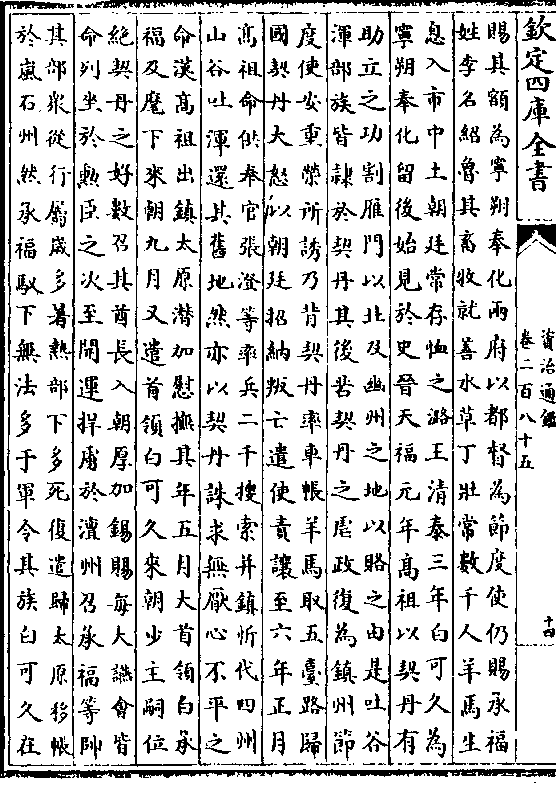 欽定四庫全書
資治通鑑
卷二百八十五
十四
賜其額為寧朔奉化兩府以都督為節度使仍賜承福
姓李名紹魯其畜牧就善水草丁壯常數千人羊馬生
息入市中土朝廷常存恤之潞王清泰三年白可久為
寧朔奉化留後始見於史晉天福元年高祖以契丹有
助立之功割雁門以北及幽州之地以賂之由是吐谷
渾部族皆隸於契丹其後苦契丹之虐政復為鎮州節
度使安重榮所誘乃背契丹率車帳羊馬取五臺路歸
國契丹大怒以朝廷招納叛亡遣使責讓至六年正月
高祖命供奉官張澄等率兵二千搜索并鎮忻代四州
山谷吐渾還其舊地然亦以契丹誅求無厭心不平之
命漢高祖出鎮太原潛加慰撫其年五月大首領白承
福及麾下來朝九月又遣首領白可久來朝少主嗣位
絶契丹之好數召其酋長入朝厚加錫賜每大讌會皆
命列坐於勲臣之次至開運捍虜於澶州召承福等帥
其部衆從行屬歲多暑熱部下多死復遣歸太原移帳
於嵐石州然承福馭下無法多于軍令其族白可久在